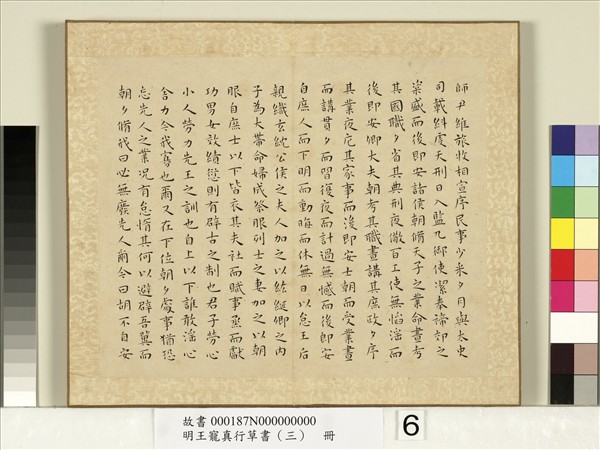 師尹維旅牧相宣序民事少采夕月與太史
司載糾虔天刑日入監九御使潔奉禘郊之
粢盛而後即安諸侯朝脩天子之業命晝考
其國職夕省其典刑夜儆百工使無慆淫而
後即安卿大夫朝考其職晝講其庶政夕序
其業夜庀其家事而後即安士朝而受業晝
而講貫夕而習復夜而計過無憾而後即安
自庶人而下明而動晦而休無日以怠王后
親織玄紞公侯之夫人加之以紘綖卿之內
子為大帶命婦成祭服列士之妻加之以朝
服自庶士以下皆衣其夫社而賦事烝而獻
功男女效績愆則有辟古之制也君子勞心
小人勞力先王之訓也自上以下誰敢淫心
舍力今我寡也爾又在下位朝夕處事猶恐
忘先人之業況有怠惰其何以避辟吾冀而
朝夕脩我曰必無廢先人爾今曰胡不自安
故書 000187N000000000
明王寵真行草書（三） 冊
6